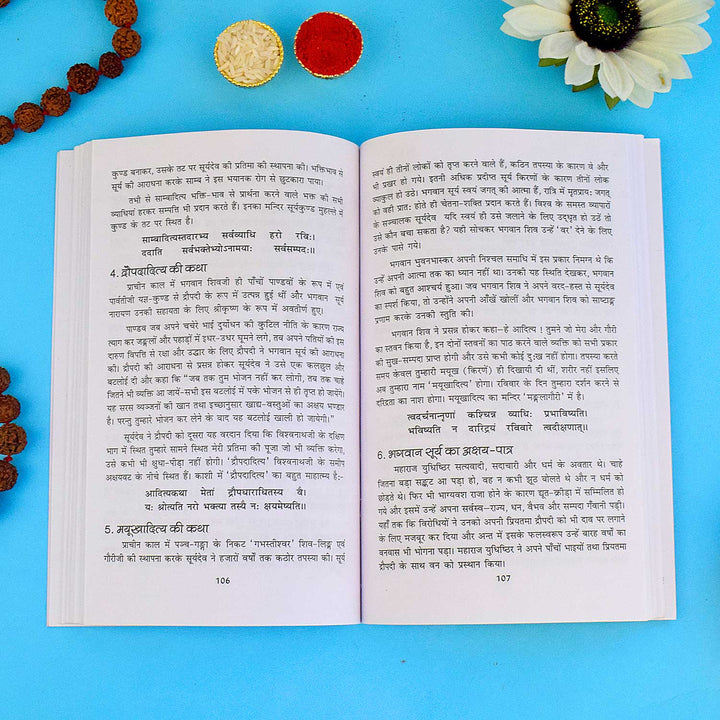 कुण्ड बनाकर, उसके तट पर सूर्यदेव की प्रतिमा की स्थापना की। भक्तिभाव से
सूर्य की आराधना करके साम्ब ने इस भयानक रोग से छुटकारा पाया।
तभी से साम्बादित्य भक्ति-भाव से प्रार्थना करने वाले भक्त की सभी
व्याधियां हरकर सम्पति भी प्रदान करते हैं। इनका मन्दिर सूर्यकुण्ड मुहल्ले में
कुण्ड के तट पर स्थित है।
साम्बादित्यस्तदारभ्य सर्वव्याधि हरो रविः।
ददाति सर्वभक्तेभ्योऽनामयाः सर्वसम्पदः॥
4. द्रौपदादित्य की कथा
प्राचीन काल में भगवान शिवजी ही पाँचों पाण्डवों के रूप में एवं
पार्वतीजी यज्ञ-कुण्ड से द्रौपदी के रूप में उत्पन्न हुई थीं और भगवान सूर्य
नारायण उनकी सहायता के लिए श्रीकृष्ण के रूप में अवतीर्ण हुए।
पाण्डव जब अपने चचेरे भाई दुर्योधन की कुटिल नीति के कारण राज्य
त्याग कर जङ्गलों और पहाड़ों में इधर-उधर घूमने लगे, तब अपने पतियों को इस
दारुण विपत्ति से रक्षा और उद्धार के लिए द्रौपदी ने भगवान सूर्य की आराधना
की। द्रौपदी की आराधना से प्रसन्न होकर सूर्यदेव ने उसे एक कलछुल और
बटलोई दी और कहा कि "जब तक तुम भोजन नहीं कर लोगी, तब तक चाहे
जितने भी व्यक्ति आ जायें-सभी इस बटलोई में पके भोजन से ही तृप्त हो जायेंगे।
यह सरस व्यञ्जनों की खान तथा इच्छानुसार खाद्य-वस्तुओं का अक्षय भण्डार
है। परन्तु तुम्हारे भोजन कर लेने के बाद यह बटलोई खाली हो जायेगी।"
सूर्यदेव ने द्रौपदी को दूसरा यह वरदान दिया कि विश्वनाथजी के दक्षिण
भाग में स्थित तुम्हारे सामने स्थित मेरी प्रतिमा की पूजा जो भी व्यक्ति करेगा,
उसे कभी भी क्षुधा-पीड़ा नहीं होगी। 'द्रौपदादित्य' विश्वनाथजी के समीप
अक्षयवट के नीचे स्थित हैं। काशी में 'द्रौपदादित्य' का बहुत माहात्म्य है:-
आदित्यकथा मेतां द्रौपद्याराधितस्य वै।
यः श्रोत्यति नरो भक्त्या तस्यै नः क्षयमेष्यति॥
5. मयूखादित्य की कथा
प्राचीन काल में पञ्च-गङ्गा के निकट 'गभस्तीश्वर' शिव-लिङ्ग एवं
गौरीजी की स्थापना करके सूर्यदेव ने हजारों वर्षों तक कठोर तपस्या की। सूर्य
106
स्वयं ही तीनों लोकों को तृप्त करने वाले हैं, कठिन तपस्या के कारण वे और
भी प्रखर हो गये। इतनी अधिक प्रदीप्त सूर्य किरणों के कारण तीनों लोक
व्याकुल हो उठे। भगवान सूर्य स्वयं जगत् की आत्मा हैं, रात्रि में मृतप्रायः जगत्
को वही प्रातः होते ही चेतना-शक्ति प्रदान करते हैं। विश्व के समस्त व्यापारों
के सञ्चालक सूर्यदेव यदि स्वयं ही उसे जलाने के लिए उद्धृत हो उठें तो
उसे कौन बचा सकता है? यही सोचकर भगवान शिव उन्हें 'वर' देने के लिए
उनके पासे गये।
भगवान भुवनभास्कर अपनी निश्चल समाधि में इस प्रकार निमग्न थे कि
उन्हें अपनी आत्मा तक का ध्यान नहीं था। उनकी यह स्थिति देखकर, भगवान
शिव को बहुत आश्चर्य हुआ। जब भगवान शिव ने अपने वरद-हस्त से सूर्यदेव
का स्पर्श किया, तो उन्होंने अपनी आँखें खोलीं और भगवान शिव को साष्टाङ्ग
प्रणाम करके उनकी स्तुति की।
भगवान शिव ने प्रसन्न होकर कहा–हे आदित्य ! तुमने जो मेरा और गौरी
का स्तवन किया है, इन दोनों स्तवनों का पाठ करने वाले व्यक्ति को सभी प्रकार
की सुख-सम्पदा प्राप्त होगी और उसे कभी कोई दुःख नहीं होगा। तपस्या करते
समय केवल तुम्हारी मयूख (किरणें) ही दिखायी दी थीं, शरीर नहीं इसलिए
अब तुम्हारा नाम 'मयूखादित्य' होगा। रविवार के दिन तुम्हारा दर्शन करने से
दरिद्रता का नाश होगा। मयूखादित्य का मन्दिर 'मङ्गलागौरी' में है।
त्वदर्चनान्नृणां कश्चिन्न व्याधिः प्रभाविष्यति।
भविष्यति न दारिद्रयं रविवारे त्वदीक्षणात्॥
6. भगवान सूर्य का अक्षय-पात्र
महाराज युधिष्ठिर सत्यवादी, सदाचारी और धर्म के अवतार थे। चाहे
जितना बड़ा सङ्कट आ पड़ा हो, वह न कभी झूठ बोलते थे और न धर्म को
छोड़ते थे। फिर भी भाग्यवश राजा होने के कारण द्यूत-क्रीड़ा में सम्मिलित हो
गये और इसमें उन्होंने अपना सर्वस्व–राज्य, धन, वैभव और सम्पदा गँवानी पड़ी।
यहाँ तक कि विरोधियों ने उनको अपनी प्रियतमा द्रौपदी को भी दाव पर लगाने
के लिए मजबूर कर दिया और अन्त में इसके फलस्वरूप उन्हें बारह वर्षों का
वनवास भी भोगना पड़ा। महाराज युधिष्ठिर ने अपने पाँचों भाइयों तथा प्रियतमा
द्रौपदी के साथ वन को प्रस्थान किया।
107